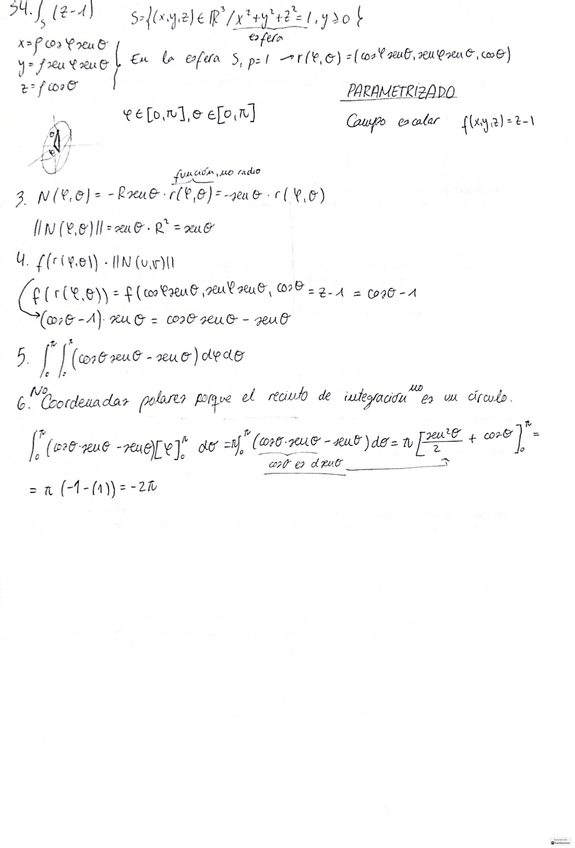 34. ∫_S (z-1)   S={(x,y,z)∈ℝ³/x²+y²+z²=1, y≥0}
esfera
x=ρcosφsenθ
y=ρsenφsenθ
z=ρcosθ
En la esfera S, ρ=1 → r(φ,θ)=(cosφsenθ, senφsenθ, cosθ)
PARAMETRIZADO
φ∈[0,π], θ∈[0,π]
Campo escalar f(x,y,z)=z-1
función, no radio
3. N(φ,θ) = -Rsenθ·r(φ,θ) = -senθ·r(φ,θ)
||N(φ,θ)|| = senθ·R² = senθ
4. f(r(φ,θ))·||N(u,v)||
f(r(φ,θ)) = f(cosφsenθ, senφsenθ, cosθ = z-1 = cosθ-1
(cosθ-1)·senθ = cosθsenθ - senθ
5. ∫₀^π ∫₀^π (cosθsenθ - senθ)dφdθ
6. No Coordenadas polares porque el recinto de integración no es un círculo.
∫₀^π (cosθ·senθ - senθ)[φ]₀^π dθ = π∫₀^π (cosθ·senθ - senθ)dθ = π[sen²θ/2 + cosθ]₀^π =
cosθ es dsenθ
= π(-1-(1)) = -2π